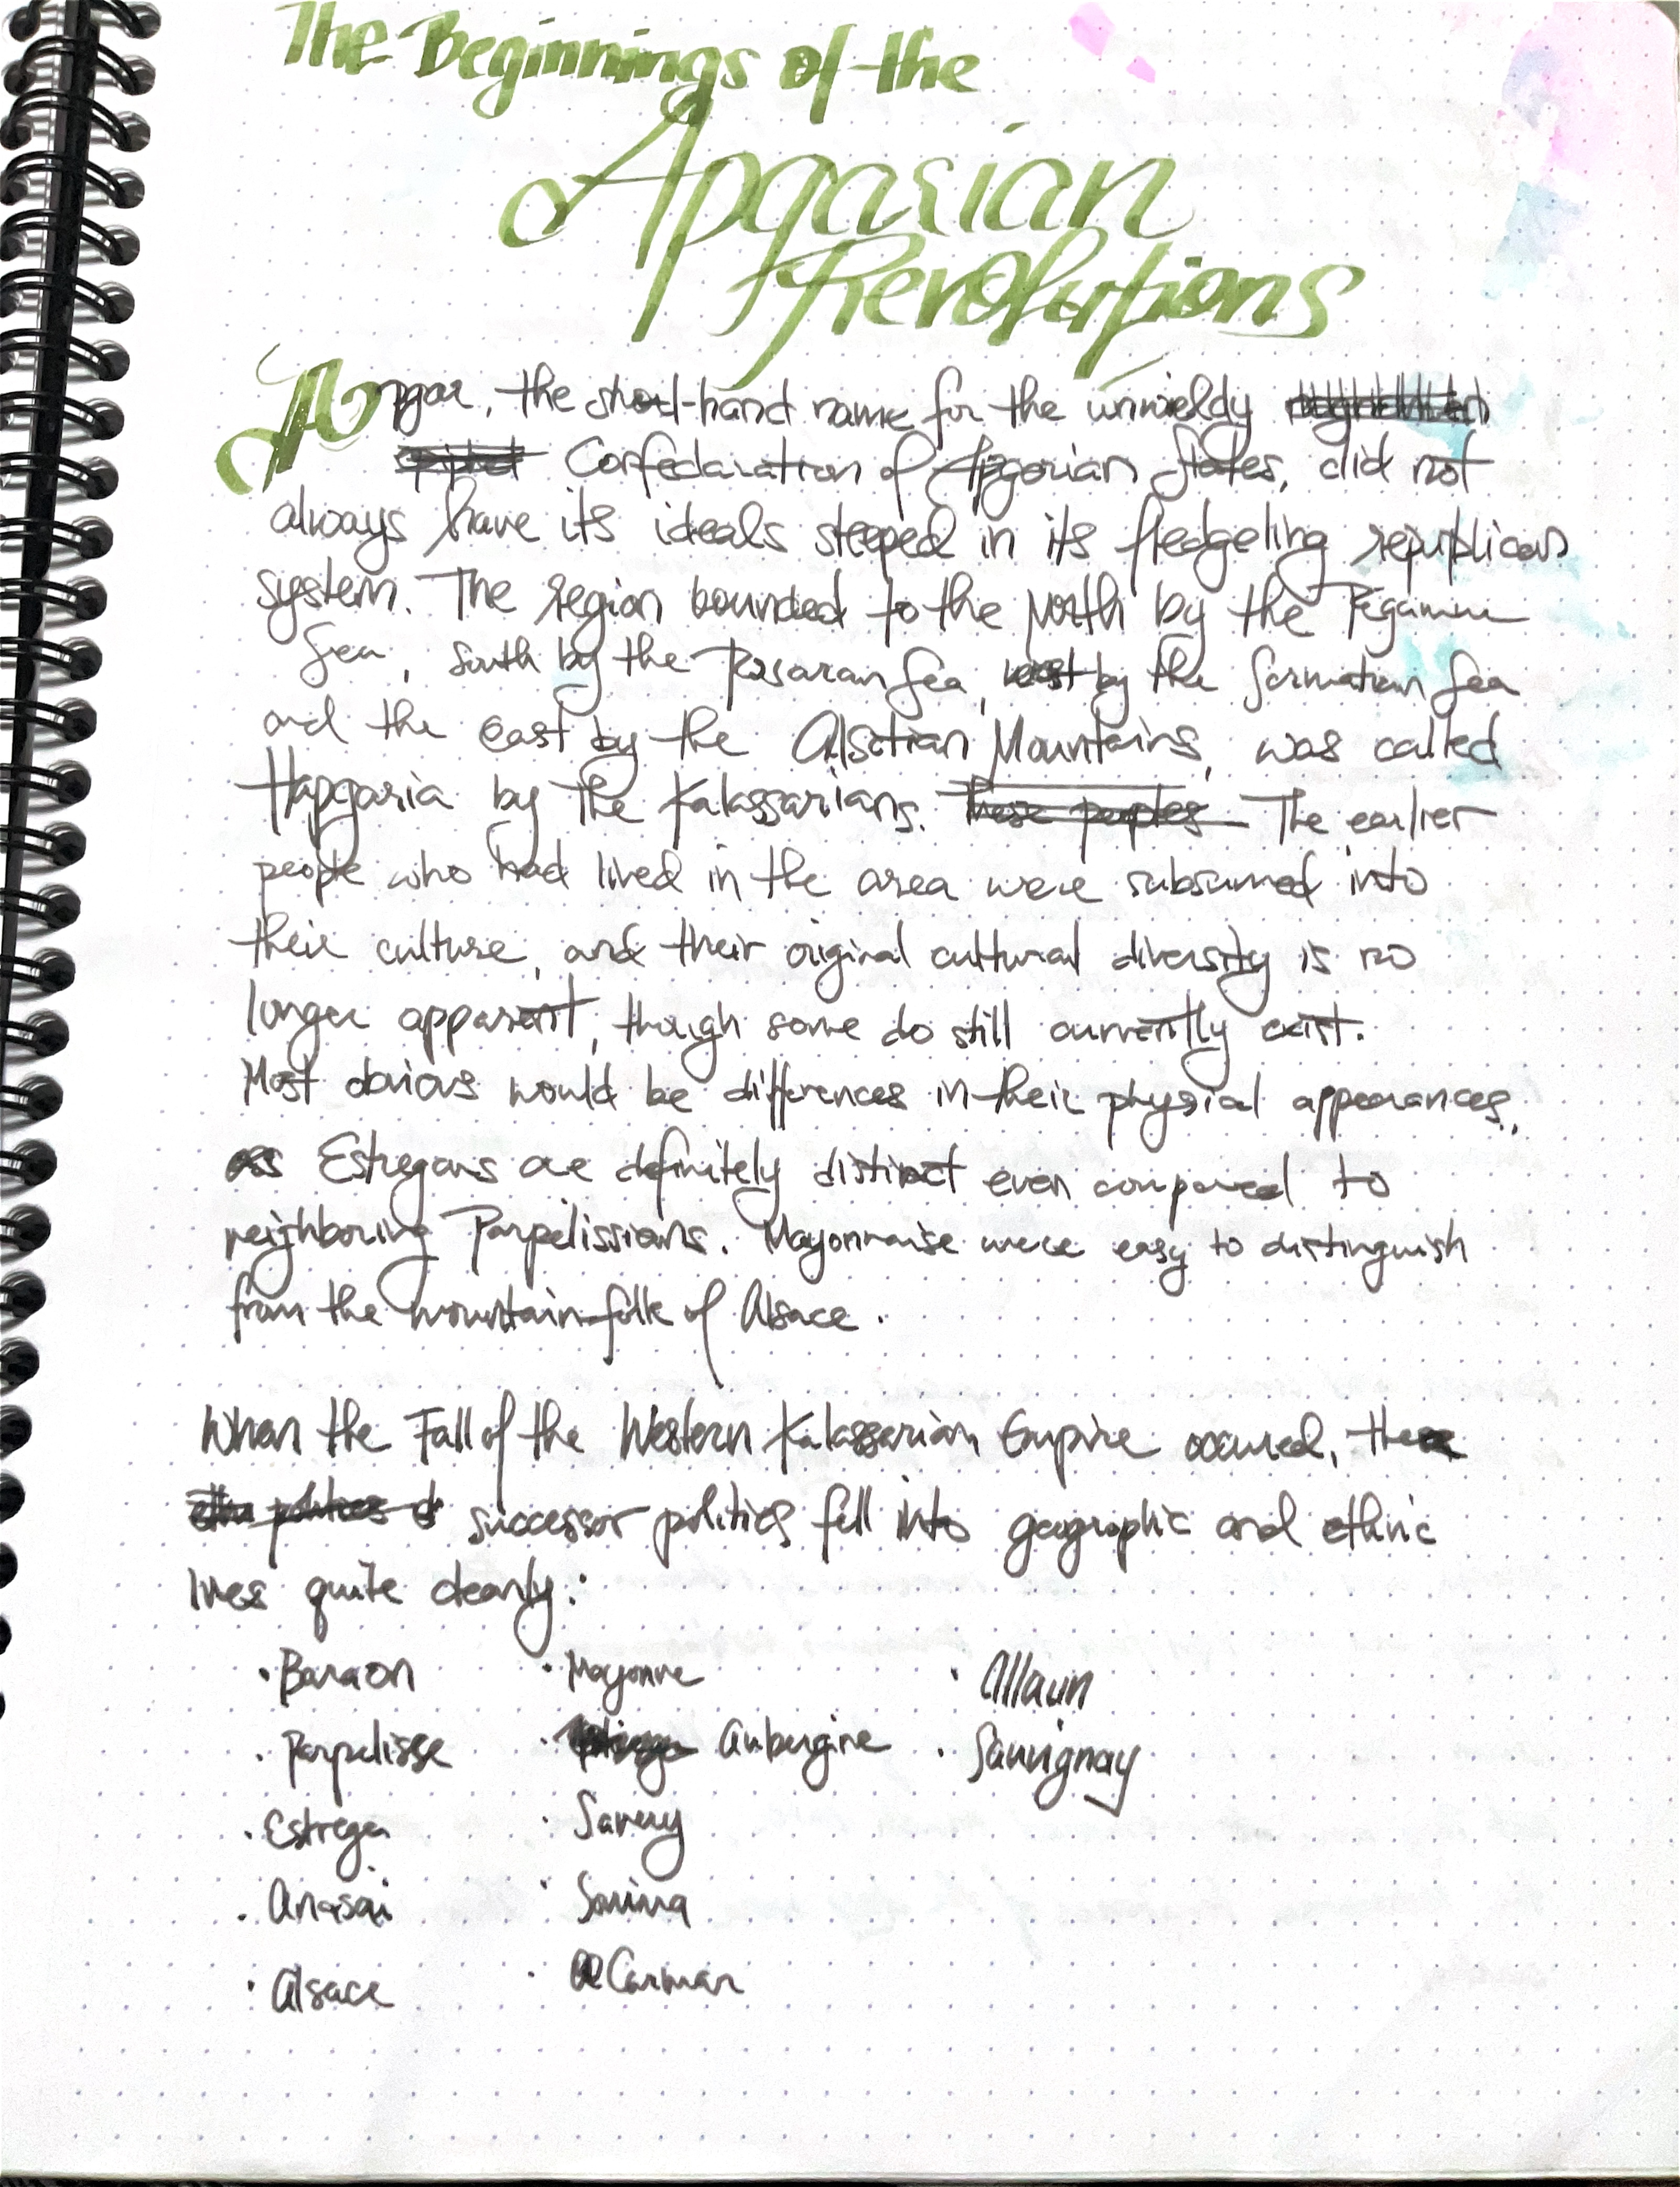 The Beginnings of the
Apgarian
Revolutions
Apgar, the short-hand name for the unwieldy
Confedaration of Apgarian States, did not
always have its ideals steeped in its fledgeling republican
system. The region bounded to the North by the
Sea, South by the Sea, west by the Sarmatian Sea
and the east by the Alsatian Mountains, was called
Hapgaria by the Kalassarians. These peoples The earlier
people who had lived in the area were subsumed into
their culture, and their original cultural diversity is no
longer apparent, though some do still currently exist.
Most obvious would be differences in their physical appearances,
as Estregans are definitely distinct even compared to
neighboring Parpelissians. Mayonnaise were easy to distinguish
from the mountain-folk of Alsace.
When the Fall of the Western Kalassarian Empire occured, the
successor polities fell into geographic and ethnic
lines quite clearly:
· Baraon
· Parpelisse
· Estrega
· Anasai
· Alsace
· Mayonne
· Aubergine
· Savuy
· Sonina
· Carman
· Allaun
· Sauvignay